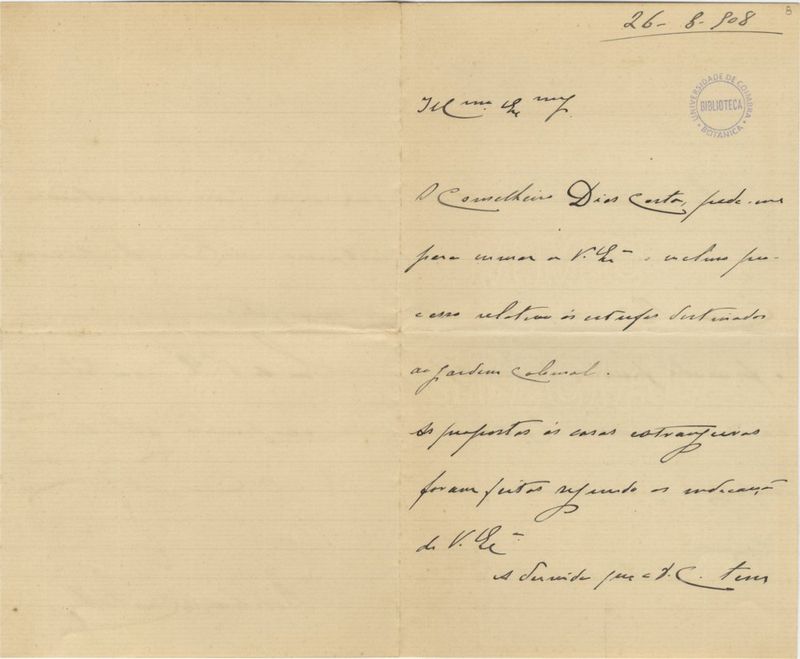 26-8-908
8
UNIVERSIDADE DE COIMBRA
BIBLIOTECA
BOTANICA
Ill mo. Ex mo
O Conselheiro Dias Costa, pede-me
para enviar a V. Exª o incluso pro-
cesso relativo ás estufas destinadas
ao jardim colonial.
As propostas ás casas estrangeiras
foram feitas segundo as indicações
de V. Exª
A duvida que o D. C. tem